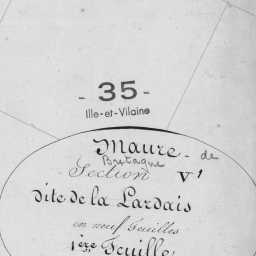 - 35 -
Ille-et-Vilaine
Maure - de
Bretagne
Section V¹
dite de la Lardais
en neuf feuilles
1ère Feuille